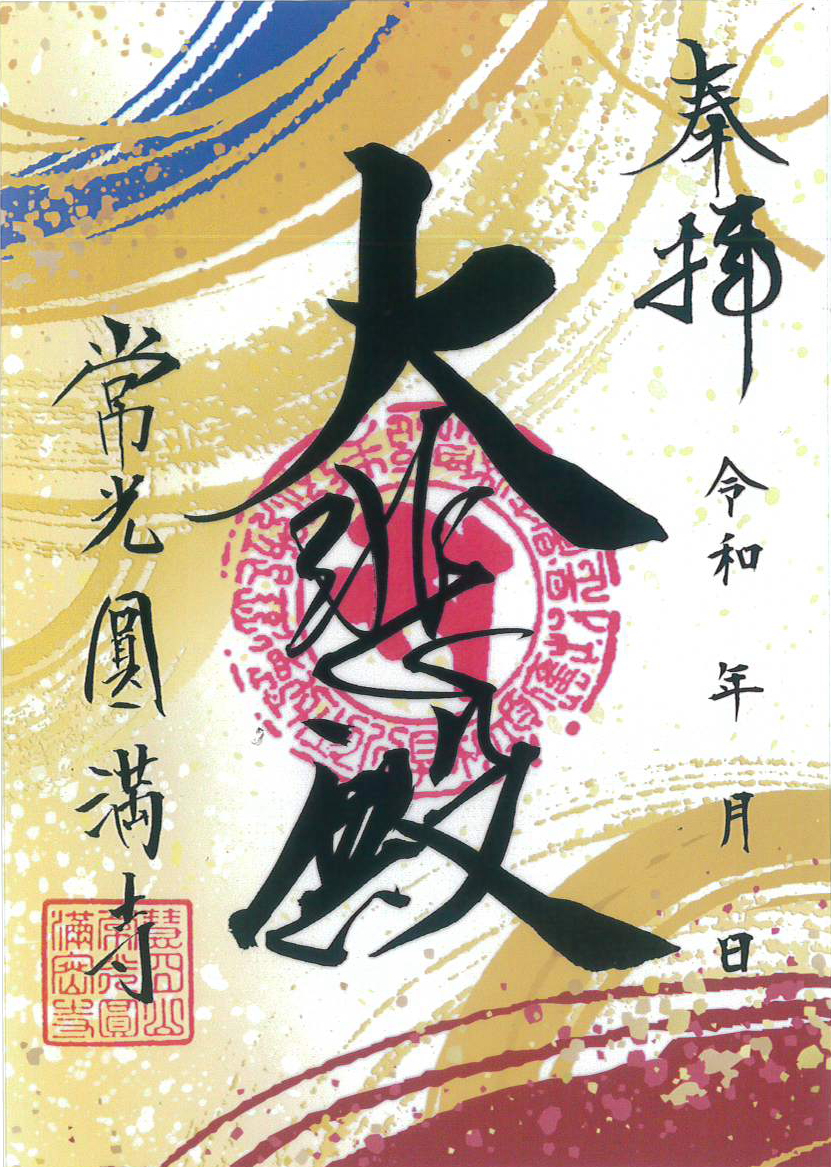 奉拝
令和 年 月 日
大悲殿
常光圓満寺